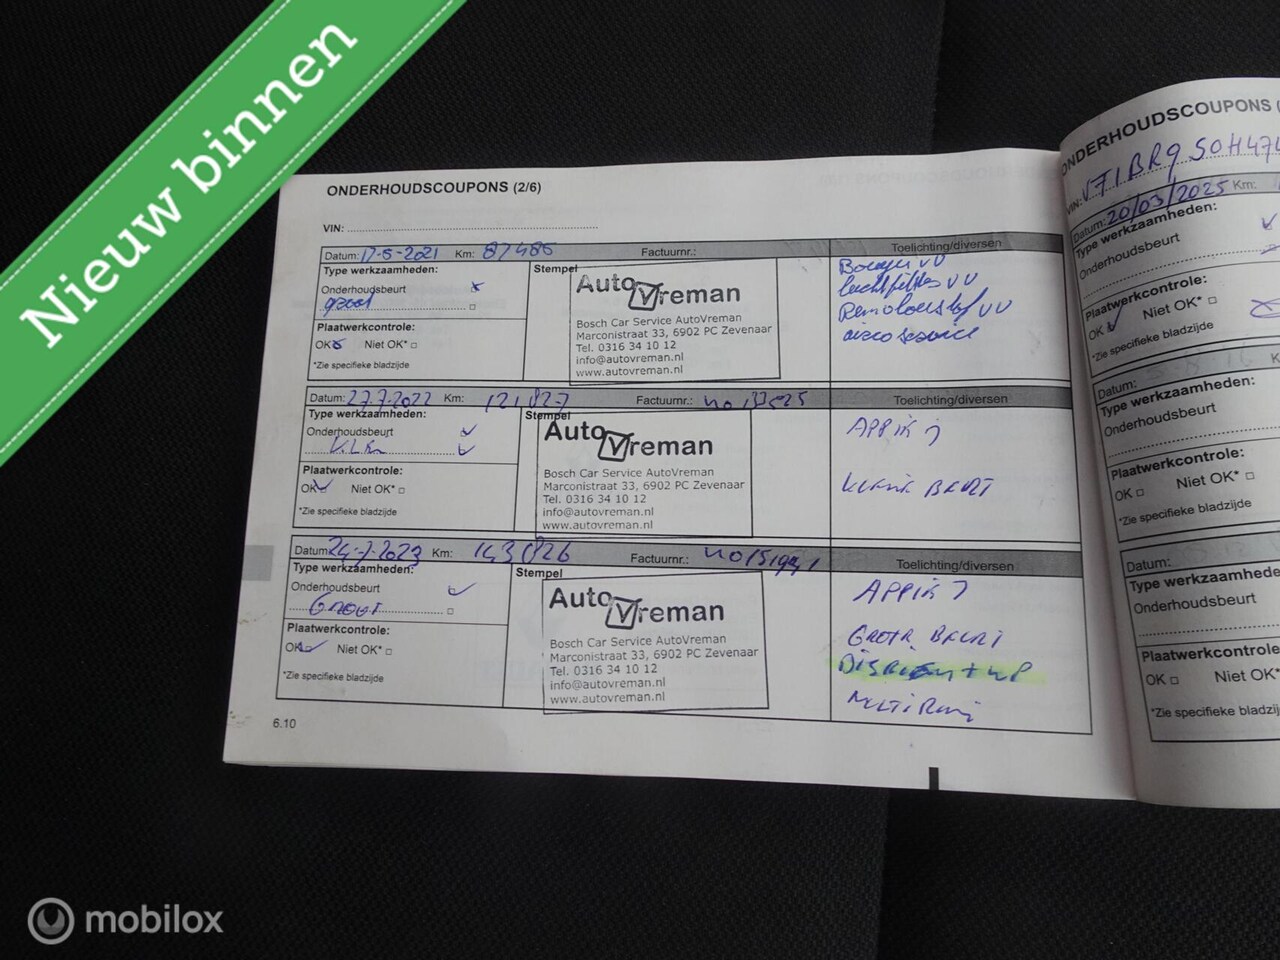 Nieuw binnen
ONDERHOUDSCOUPONS (2/6)
VIN:
Datum: 17-5-2021 Km: 87486 Factuurnr.: Toelichting/diversen
Type werkzaamheden:
Onderhoudsbeurt
groot
Plaatwerkcontrole:
OK Niet OK*
*Zie specifieke bladzijde
Stempel
AutoVreman
Bosch Car Service AutoVreman
Marconistraat 33, 6902 PC Zevenaar
Tel. 0316 34 10 12
info@autovreman.nl
www.autovreman.nl
Bougies VV
luchtfilter VV
Remvloeistof VV
airco service
Datum: 27.7.2022 Km: 121827 Factuurnr.: Toelichting/diversen
Type werkzaamheden:
Onderhoudsbeurt
Plaatwerkcontrole:
OK Niet OK*
*Zie specifieke bladzijde
Stempel
AutoVreman
Bosch Car Service AutoVreman
Marconistraat 33, 6902 PC Zevenaar
Tel. 0316 34 10 12
info@autovreman.nl
www.autovreman.nl
BEURT
Datum: 24-7-2023 Km: 143826 Factuurnr.: Toelichting/diversen
Type werkzaamheden:
Onderhoudsbeurt
GROOT
Plaatwerkcontrole:
OK Niet OK*
*Zie specifieke bladzijde
Stempel
AutoVreman
Bosch Car Service AutoVreman
Marconistraat 33, 6902 PC Zevenaar
Tel. 0316 34 10 12
info@autovreman.nl
www.autovreman.nl
GROTE BEURT
MULTIRIEM
6.10
ONDERHOUDSCOUPONS (
VIN:
Datum: 20/03/2025 Km:
Type werkzaamheden:
Onderhoudsbeurt
Plaatwerkcontrole:
OK Niet OK*
*Zie specifieke bladzijde
Datum:
Type werkzaamheden:
Onderhoudsbeurt
Plaatwerkcontrole:
OK Niet OK*
*Zie specifieke bladzijde
Datum:
Type werkzaamhede
Onderhoudsbeurt
Plaatwerkcontrole
OK Niet OK*
*Zie specifieke bladzij
mobilox